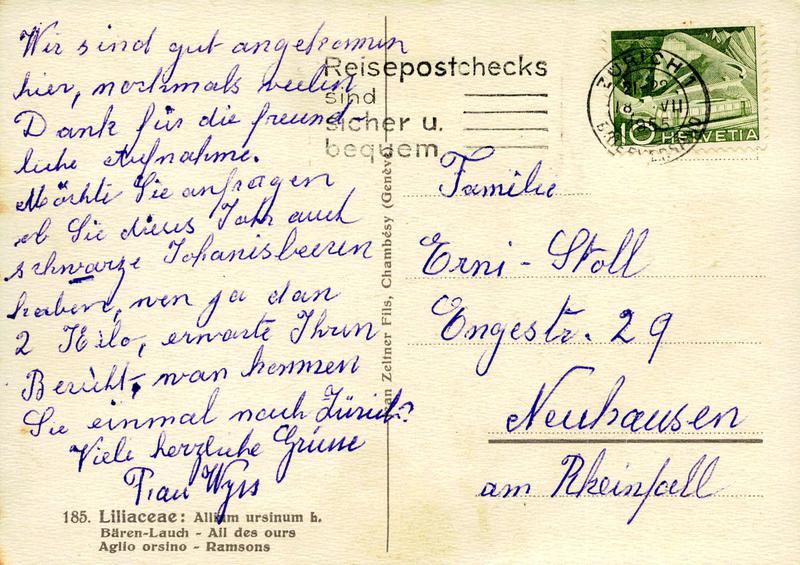 Wir sind gut angekommen
hier, nochmals vielen
Dank für die freund-
liche Aufnahme.
Möchte Sie anfragen
ob Sie dieses Jahr auch
schwarze Johanisbeeren
haben, wen ja dan
2 Kilo, erwarte Ihren
Bericht, wan kommen
Sie einmal nach Zürich?
Viele herzliche Grüsse
Frau Wyss
185. Liliaceae: Allium ursinum h.
Bären-Lauch - Ail des ours
Aglio orsino - Ramsons
an Zeltner Fils, Chambésy (Genève
Reisepostchecks
sind
sicher u.
bequem
ZÜRICH 1
18. VII
1955
BRIEFVERSAND
10 HELVETIA
Familie
Erni - Stoll
Engestr. 29
Neuhausen
am Rheinfall